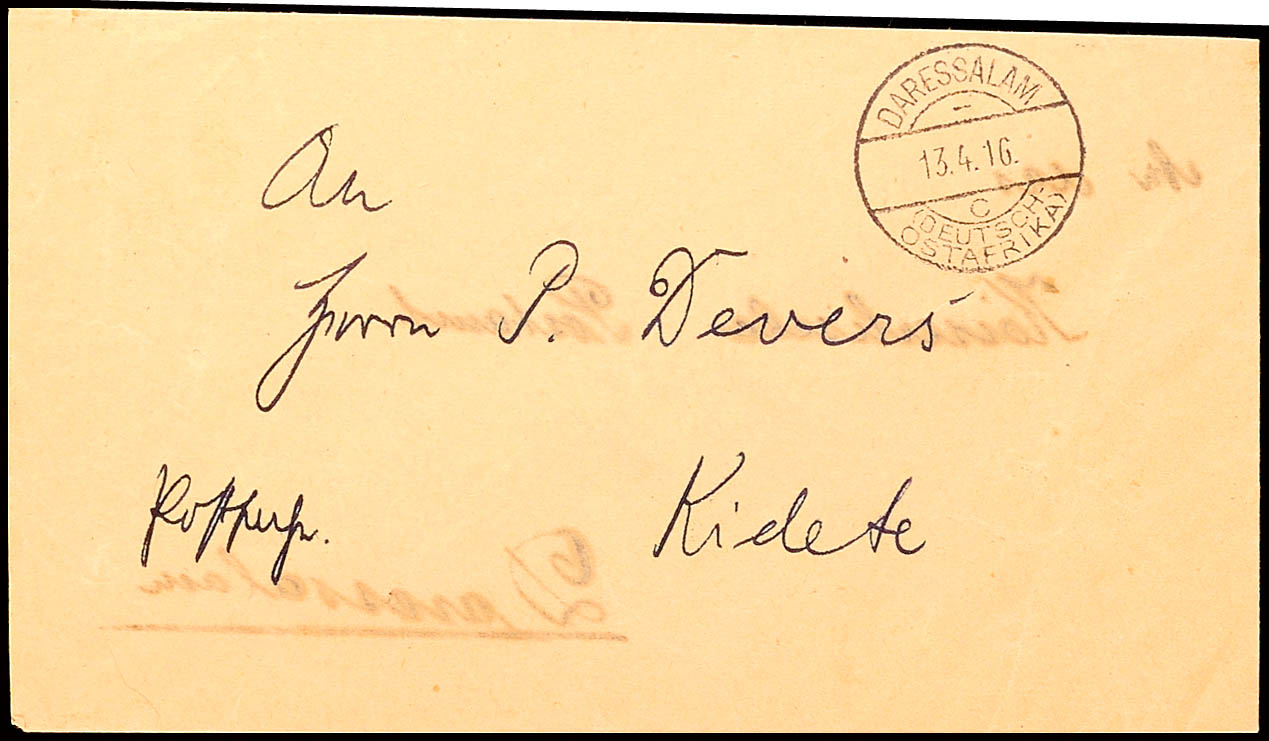 DARESSALAM
13.4.16.
C
(DEUTSCH-
OSTAFRIKA)
An
Herrn P. Devers
Kidete
Daressalam